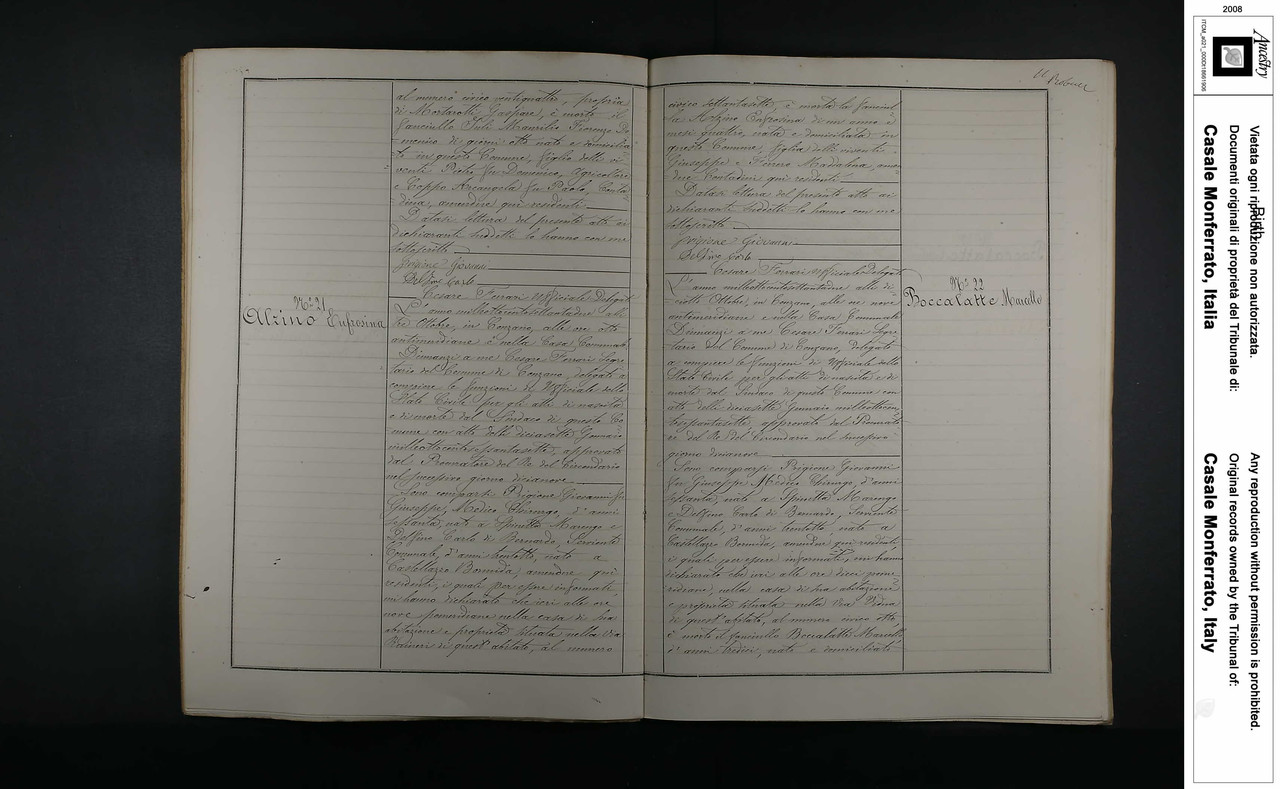 al numero civico ventiquattro, propria
di Mortarotti Gaspare, è morto il
fanciullo Juli Maurilio Fiorenzo Do
menico di giorni otto nato e domicilia
to in questo Comune, figlio delli vi
venti Pietro fu Domenico, Agricoltore
e Coppo Arcangela fu Paolo, Conta
dina, amendue qui residenti
Datasi lettura del presente atto ai
dichiaranti suddetti lo hanno con me
sottoscritto
Giovanni
Delfino Carlo
Cesare Ferrari Uffiziale Delegato
N.° 21
Alzino Eufrosina
L'anno milleottocentosettantadue alli
tre Ottobre, in Conzano, alle ore otto
antimeridiane e nella Casa Comunale
Dinnanzi a me Cesare Ferrari Segre
tario del Comune di Conzano, delegato a
compiere le funzioni di Uffiziale dello
Stato Civile per gli atti di nascita
e di morte dal Sindaco di questo Co
mune con atto delli diciasette Gennaio
milleottocentosessantasette, approvato
dal Procuratore del Re del Circondario
nel successivo giorno dicianove
Sono comparsi Prigione Giovanni fu
Giuseppe, Medico Chirurgo, d'anni
sessanta, nato a Spinetta Marengo e
Delfino Carlo di Bernardo, Serviente
Comunale, d'anni trentotto, nato a
Castellazzo Bormida, amendue qui
residenti, i quali per essere informati,
mi hanno dichiarato che ieri alle ore
nove pomeridiane nella casa di sua
abitazione e proprietà situata nella via
di quest'abitato, al numero
civico settantasette, è morta la fanciul
la Alzino Eufrosina di un anno e
mesi quattro, nata e domiciliata in
questo Comune, figlia delli viventi
Giuseppe e Ferrero Maddalena, amen
due Contadini qui residenti
Datasi lettura del presente atto ai
dichiaranti suddetti lo hanno con me
sottoscritto
Giovanni
Delfino Carlo
Cesare Ferrari Uffiziale Delegato
N.° 22
Boccalatte Marcello
L'anno milleottocentosettantadue alli di
ciotto Ottobre, in Conzano, alle ore nove
antimeridiane e nella Casa Comunale
Dinnanzi a me Cesare Ferrari Segre
tario del Comune di Conzano, delegato
a compiere le funzioni di Uffiziale dello
Stato Civile per gli atti di nascita e di
morte dal Sindaco di questo Comune con
atto delli diciasette Gennaio milleottocen
tosessantasette, approvato dal Procurato
re del Re del Circondario nel successivo
giorno dicianove
Sono comparsi Prigione Giovanni
fu Giuseppe Medico Chirurgo, d'anni
sessanta, nato a Spinetta Marengo
e Delfino Carlo di Bernardo, Serviente
Comunale, d'anni trentotto nato a
Castellazzo Bormida, amendue qui residenti
i quali per essere informati, mi hanno
dichiarato che ieri alle ore dieci pome
ridiane, nella casa di sua abitazione
e proprietà situata nella via
di quest'abitato, al numero civico otto,
è morto il fanciullo Boccalatte Marcello
d'anni tredici, nato e domiciliato
2008
Ancestry
Vietata ogni riproduzione non autorizzata.
Documenti originali di proprietà del Tribunale di:
Casale Monferrato, Italia
Birth
Any reproduction without permission is prohibited.
Original records owned by the Tribunal of:
Casale Monferrato, Italy